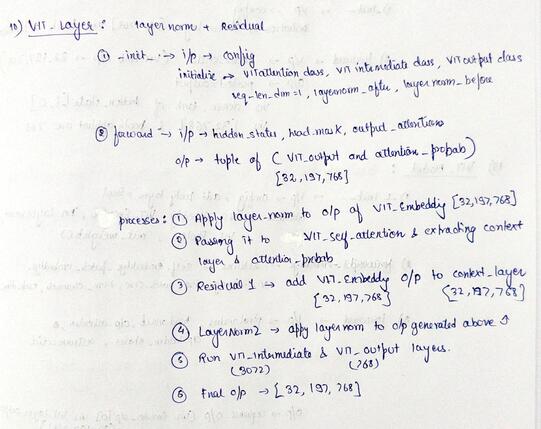 10) VIT_Layer : layer norm + Residual
① -init_ → i/p → config
initialize → VITattention class, VIT intermediate class, VIT output class
seq-len_dim = 1, layernorm_after, layer norm_before
② forward → i/p → hidden_states, head_mask, output_attentions
o/p → tuple of ( VIT_output and attention_probab)
[32, 197, 768]
processes : ① Apply layer_norm to o/p of VIT_Embeddig [32, 197, 768]
② Passing it to VIT_self_attention & extracting context
layer & attention_probab
③ Residual 1 → add VIT_Embeddg o/p to context_layer
[32, 197, 768] [32, 197, 768]
④ LayerNorm2 → apply layernorm to o/p generated above ↑
⑤ Run VIT_intermediate & VIT_output layers.
(3072) (768)
⑥ Final o/p → [32, 197, 768]